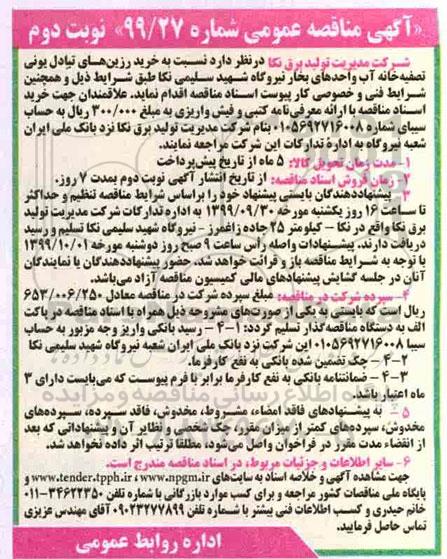 «آگهی مناقصه عمومی شماره ۹۹/۲۷» نوبت دوم
شرکت مدیریت تولید برق نکا در نظر دارد نسبت به خرید رزین‌های تبادل یونی
تصفیه‌خانه آب واحدهای بخار نیروگاه شهید سلیمی نکا طبق شرایط ذیل و همچنین
شرایط فنی و خصوصی کار پیوست اسناد مناقصه اقدام نماید. علاقمندان جهت خرید
اسناد مناقصه با ارائه معرفی‌نامه کتبی و فیش واریزی به مبلغ ۳۰۰/۰۰۰ ریال به حساب
سیبای شماره ۰۱۰۵۶۹۲۷۱۶۰۰۸ بنام شرکت مدیریت تولید برق نکا نزد بانک ملی ایران
شعبه نیروگاه به اداره تدارکات این شرکت مراجعه نمایند.
۱- مدت زمان تحویل کالا: ۵ ماه از تاریخ پیش‌پرداخت
۲- زمان فروش اسناد مناقصه: از تاریخ انتشار آگهی نوبت دوم بمدت ۷ روز.
۳- پیشنهاددهندگان بایستی پیشنهاد خود را براساس شرایط مناقصه تنظیم و حداکثر
تا ساعت ۱۶ روز یکشنبه مورخه ۱۳۹۹/۰۹/۳۰ به اداره تدارکات شرکت مدیریت تولید
برق نکا واقع در نکا – کیلومتر ۲۵ جاده زاغمرز – نیروگاه شهید سلیمی نکا تسلیم و رسید
دریافت دارند. پیشنهادات واصله رأس ساعت ۹ صبح روز دوشنبه مورخه ۱۳۹۹/۱۰/۰۱
با توجه به شرایط مناقصه باز و قرائت خواهد شد. حضور پیشنهاددهندگان یا نمایندگان
آنان در جلسه گشایش پیشنهادهای مالی کمیسیون مناقصه آزاد می‌باشد.
۴- سپرده شرکت در مناقصه: مبلغ سپرده شرکت در مناقصه معادل ۶۵۳/۰۰۶/۲۵۰
ریال است که بایستی به یکی از صورت‌های مشروحه ذیل همراه با اسناد مناقصه در پاکت
الف به دستگاه مناقصه‌گذار تسلیم گردد: ۱-۴- رسید بانکی واریز وجه مزبور به حساب
سیبا ۰۱۰۵۶۹۲۷۱۶۰۰۸ این شرکت نزد بانک ملی ایران شعبه نیروگاه شهید سلیمی نکا
۲-۴- چک تضمین شده بانکی به نفع کارفرما.
۳-۴- ضمانتنامه بانکی به نفع کارفرما برابر با فرم پیوست که می‌بایست دارای ۳
ماه اعتبار باشد.
۵- به پیشنهادهای فاقد امضاء، مشروط، مخدوش، فاقد سپرده، سپرده‌های
مخدوش، سپرده‌های کمتر از میزان مقرر، چک شخصی و نظایر آن و پیشنهاداتی که بعد
از انقضاء مدت مقرر در فراخوان واصل می‌شود، مطلقا ترتیب اثر داده نخواهد شد.
۶- سایر اطلاعات و جزئیات مربوط، در اسناد مناقصه مندرج است.
جهت مشاهده آگهی و خلاصه اسناد به سایت‌های www.npgm.ir ، www.tender.tpph.ir و
پایگاه ملی مناقصات کشور مراجعه و برای کسب موارد بازرگانی با شماره تلفن ۳۴۶۲۲۳۵۰-۰۱۱
خانم حیدری و کسب اطلاعات فنی بیشتر با شماره تلفن ۰۹۰۲۳۲۷۷۸۹۹ آقای مهندس عزیزی
تماس حاصل فرمایید.
اداره روابط عمومی